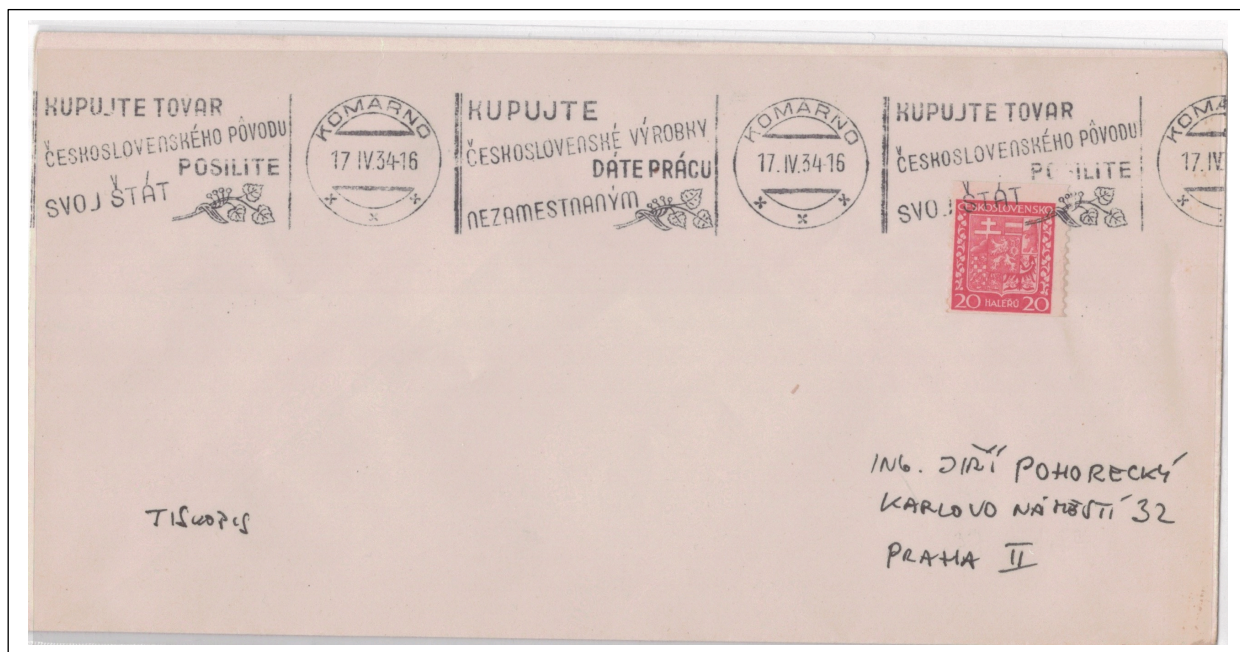 KUPUJTE TOVAR
ČESKOSLOVENSKÉHO PÔVODU
POSILITE
SVOJ ŠTÁT
KOMÁRNO
17 IV.34-16
KUPUJTE
ČESKOSLOVENSKÉ VÝROBKY
DÁTE PRÁCU
NEZAMESTNANÝM
KOMÁRNO
17.IV.34-16
KUPUJTE TOVAR
ČESKOSLOVENSKÉHO PÔVODU
POSILITE
SVOJ ŠTÁT
KOMÁ
17.IV
ČESKOSLOVENSKO
20 HALÉŘŮ 20
ING. JIŘÍ POHORECKÝ
KARLOVO NÁMĚSTÍ 32
PRAHA II
TISKOPIS